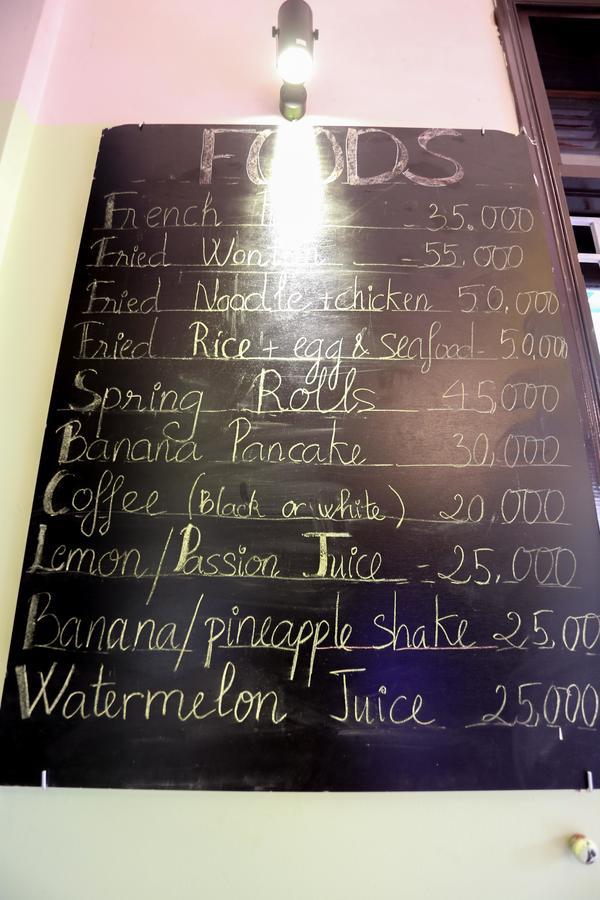 FOODS
French - 35.000
Fried Wonton - 55.000
Fried Noodle + chicken 50,000
Fried Rice + egg & seafood - 50,000
Spring Rolls 45,000
Banana Pancake 30,000
Coffee (Black or white) 20,000
Lemon/Passion Juice - 25,000
Banana/pineapple shake 25,00
Watermelon Juice 25,000